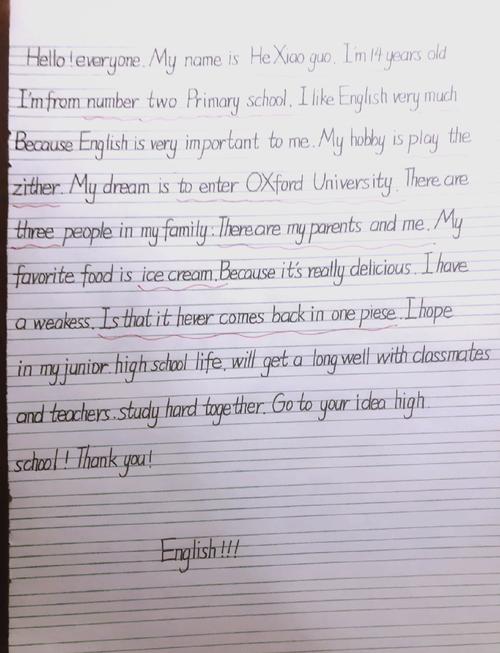 Hello! everyone. My name is He Xiao guo. I'm 14 years old
I'm from number two Primary school. I like English very much
Because English is very important to me. My hobby is play the
zither. My dream is to enter OXford University. There are
three people in my family: There are my parents and me. My
favorite food is ice cream. Because it's really delicious. I have
a weakess. Is that it hever comes back in one piese. I hope
in my junior high school life, will get a long well with classmates
and teachers. study hard together. Go to your idea high
school! Thank you!
English!!!